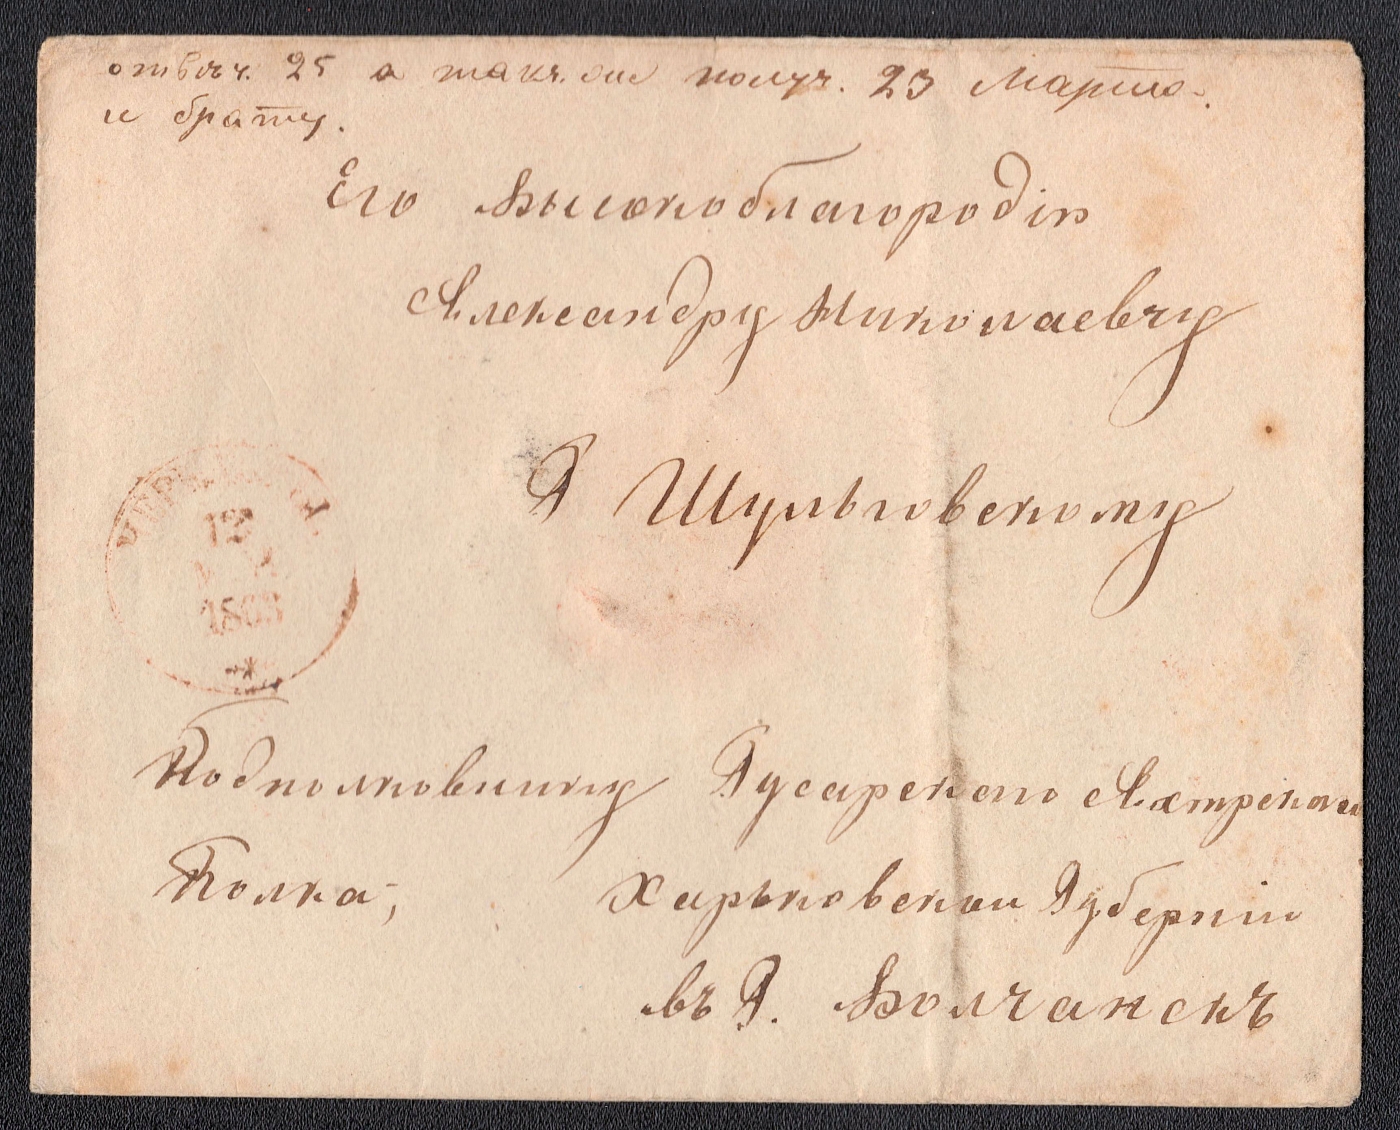 отвѣч. 25 а также получ. 23 Марта.
и брату.
Его Высокоблагородію
Александру Николаевчу
Г Шульговскому
12
1868
Подполковнику Гусарскаго Ахтрскаго
Полка,
Харьковской Губерніи
въ Г. Волчанскъ